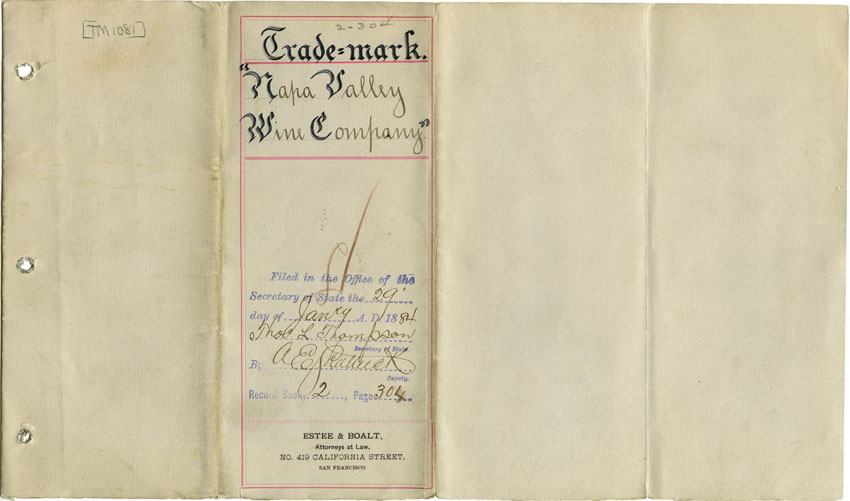 [TM1081]
2-304
Trade=mark.
"Napa Valley
Wine Company"
Filed in the Office of the
Secretary of State the 29"
day of Jan'ry A. D. 1884
Thos L. Thompson
Secretary of State.
By A E
Deputy.
Record Book, 2, Page 304
ESTEE & BOALT,
Attorneys at Law,
NO. 419 CALIFORNIA STREET,
SAN FRANCISCO.